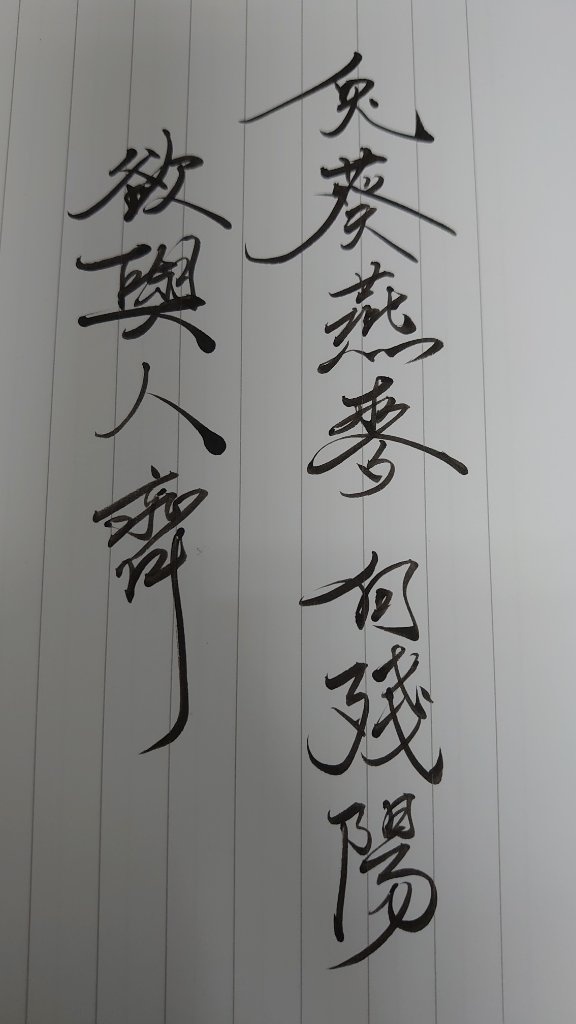 兔葵燕麥 向殘陽
欲與人齊